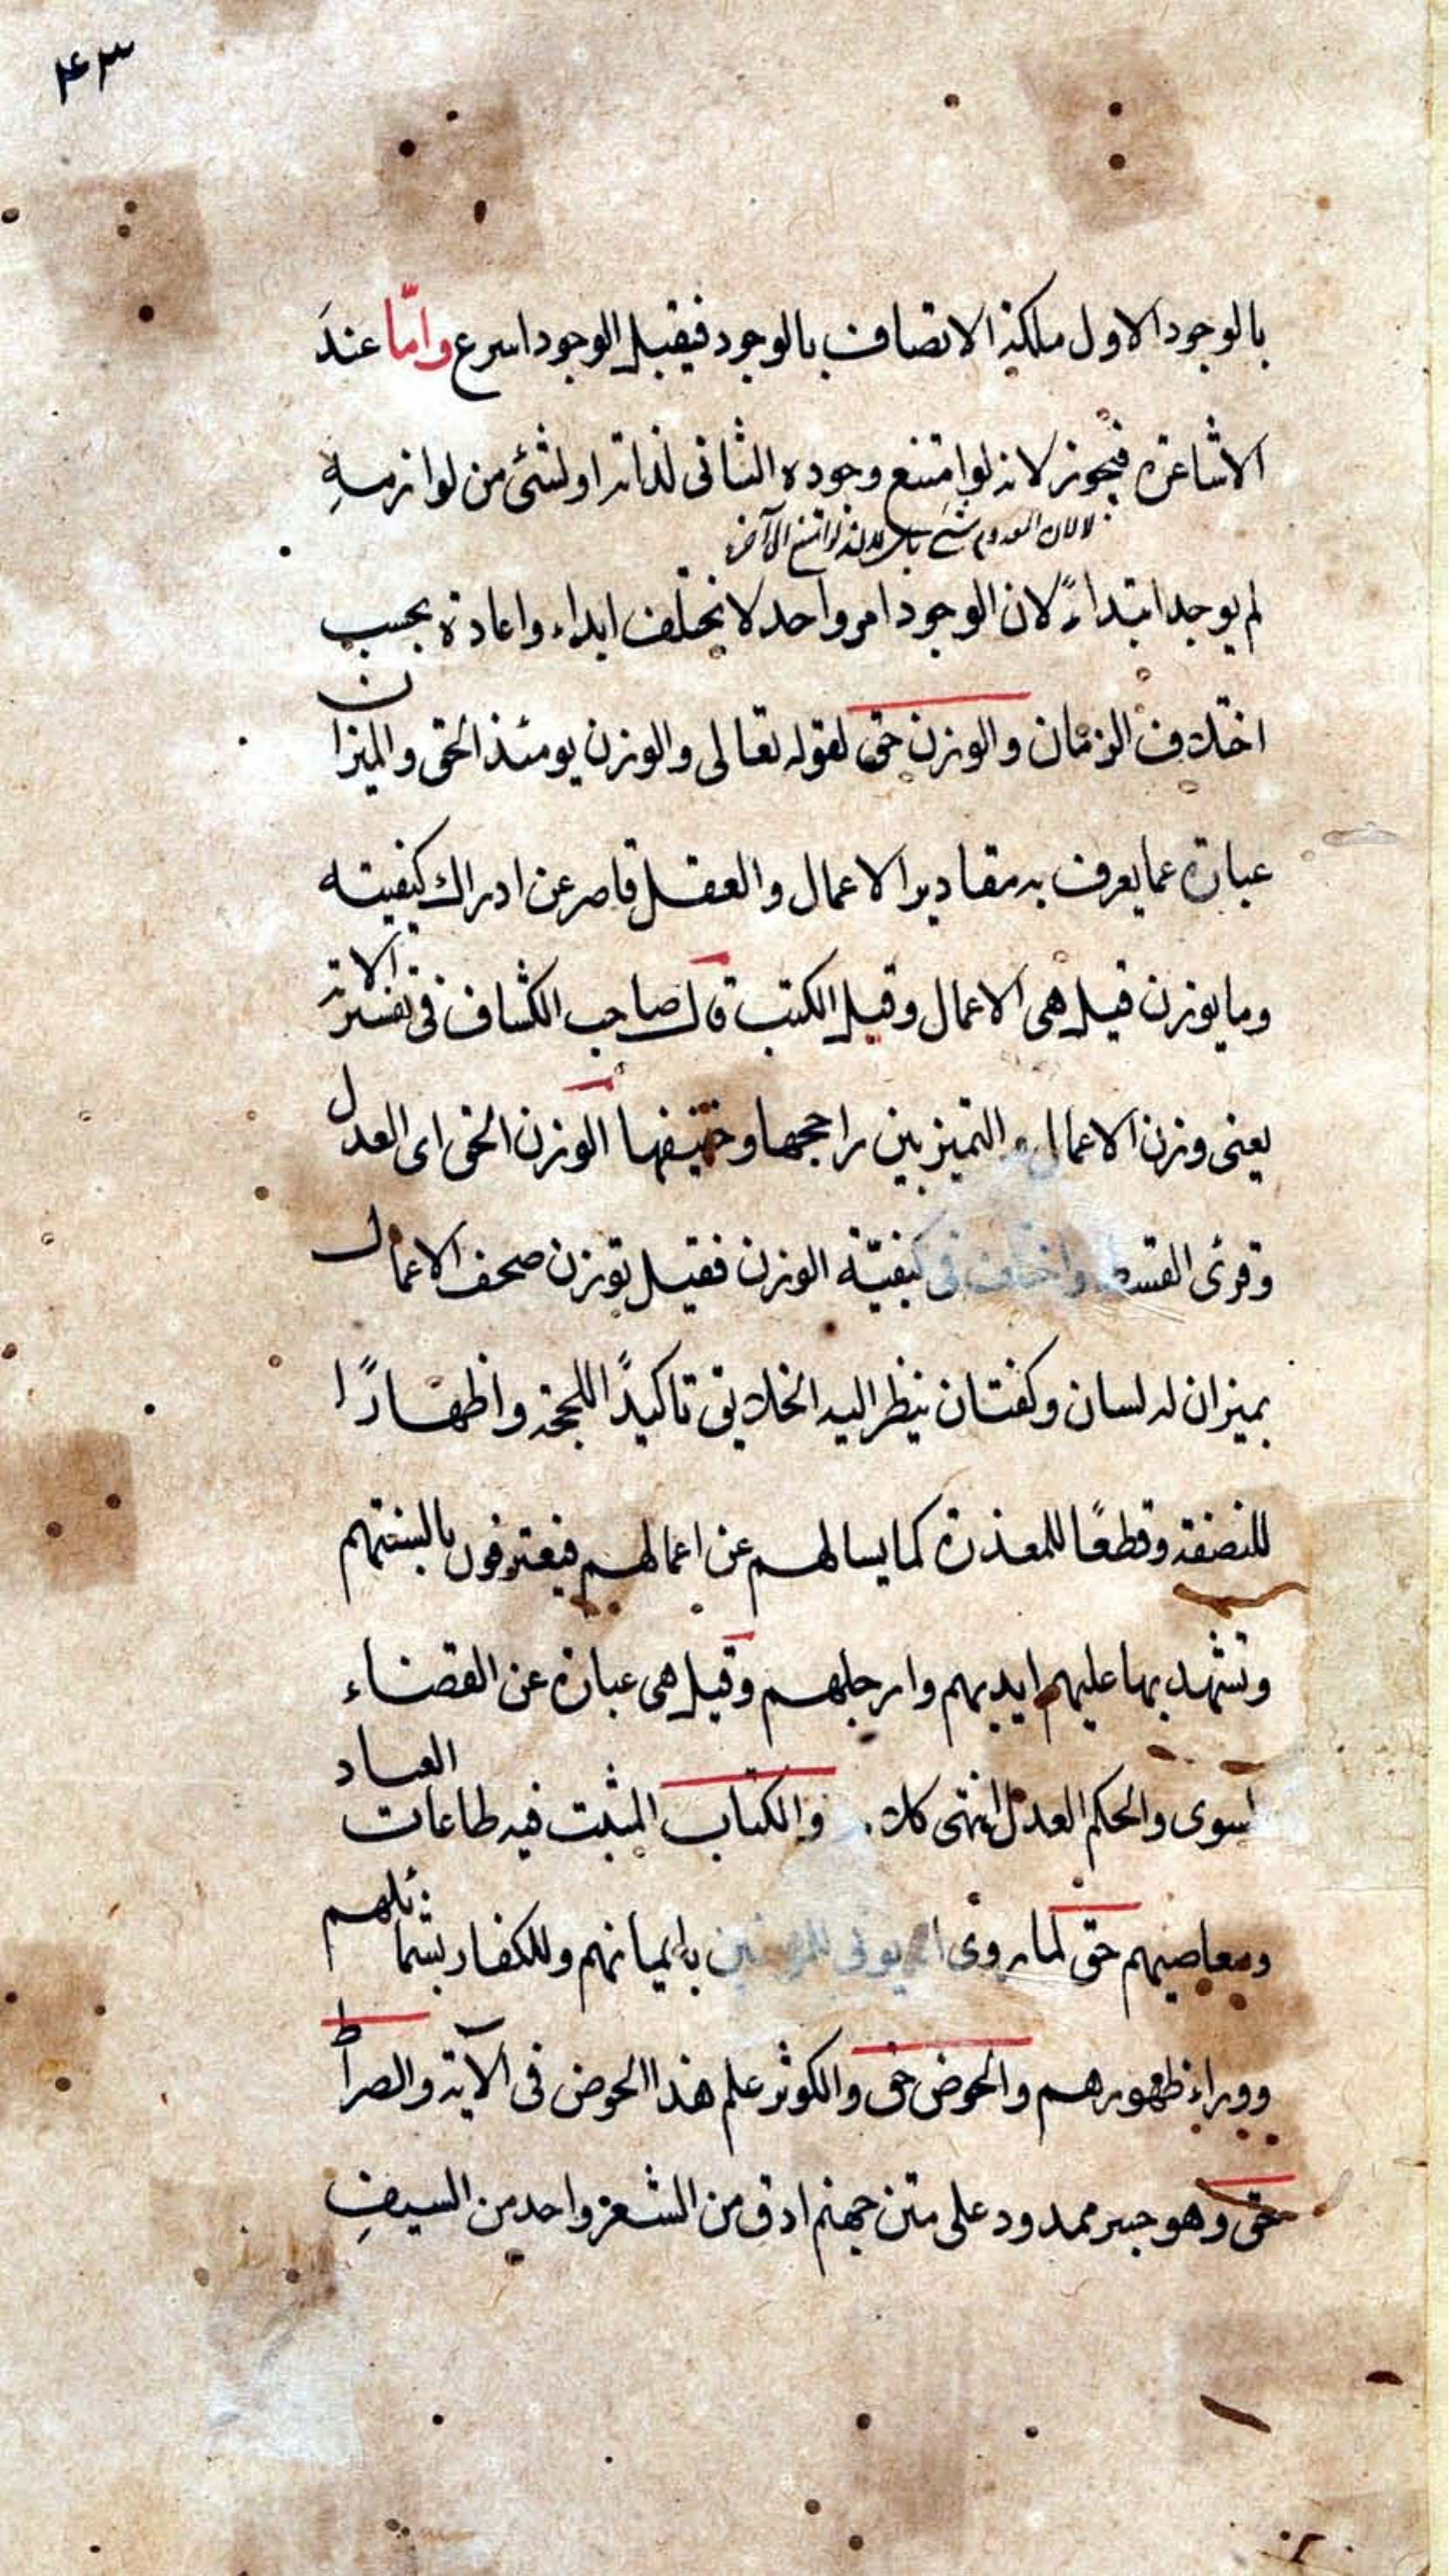 ٤٣
بالوجود الاول ملكة الاتصاف بالوجود فيقبل الوجود اسرع واما عند
الاشاعرة فيجوز لانه لو امتنع وجوده الثانى لذاته او لشئ من لوازمه
لا لان المعدوم شئ بل لانه لو امتنع الى آخره
لم يوجد ابتداءً لان الوجود امر واحد لا يختلف ابداء واعادة بحسب
اختلاف الزمان والوزن حق لقوله تعالى والوزن يومئذ الحق والميزان
عبارة عما يعرف به مقادير الاعمال والعقل قاصر عن ادراك كيفيته
وما يوزن قيل هى الاعمال وقيل الكتب قال صاحب الكشاف فى تفسير الاية
يعنى وزن الاعمال والتميز بين راجحها وخفيفها الوزن الحق اى العدل
وقرئ القسط واختلف فى كيفيّة الوزن فقيل توزن صحف الاعمال
بميزان له لسان وكفتان ينظر اليه الخلايق تاكيدًا للحجة واظهارًا
للنصفة وقطعًا للمعذرة كما يسالهم عن اعمالهم فيعترفون بالسنتهم
وتشهد بها عليهم ايديهم وارجلهم وقيل هى عبارة عن القضاء
السوى والحكم العدل انتهى كلا. والكتاب المثبت فيه طاعات العباد
ومعاصيهم حق لما روى انه يوتى للمؤمنين بايمانهم وللكفار بشمائلهم
ووراء ظهورهم والحوض حق والكوثر علم هذا الحوض فى الآية والصراط
حق وهو جسر ممدود على متن جهنم ادق من الشعر واحد من السيفِ